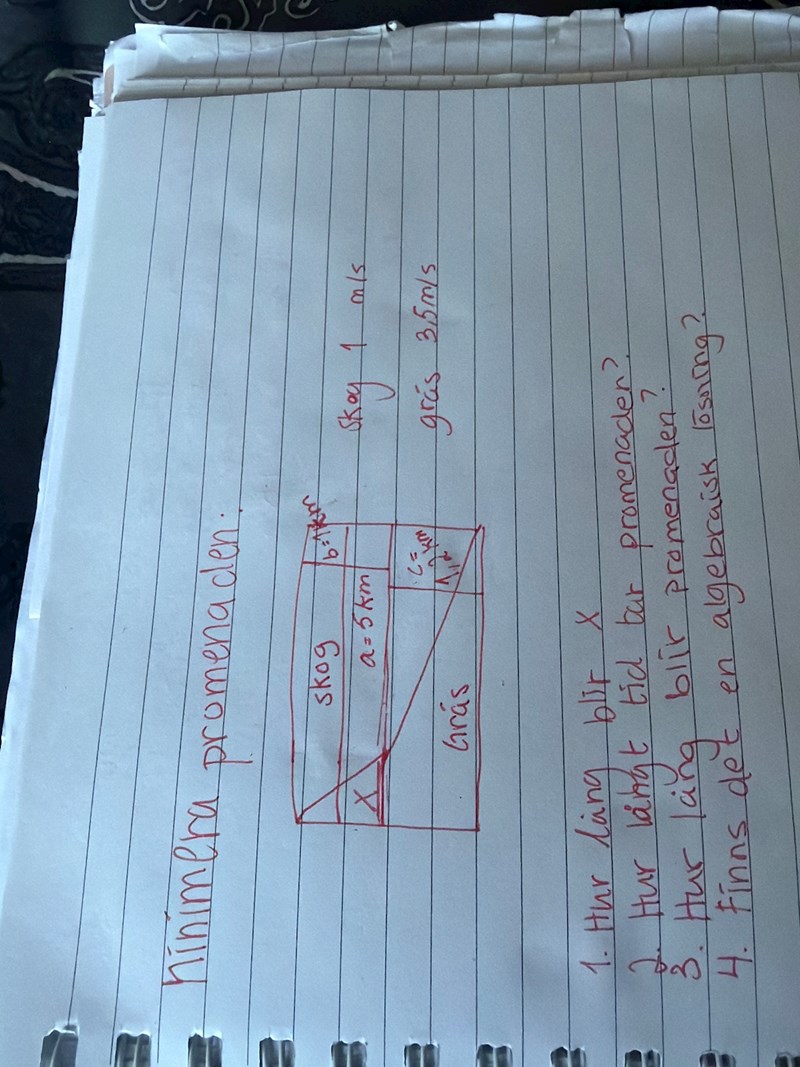 Minimera promenaden.
skog
b=1km
skog 1 m/s
X
a=5km
gräs 3,5m/s
Gräs
c=
1,2 km
1. Hur lång blir X
2. Hur långt tid tar promenaden?
3. Hur lång blir promenaden?
4. Finns det en algebraisk lösning?